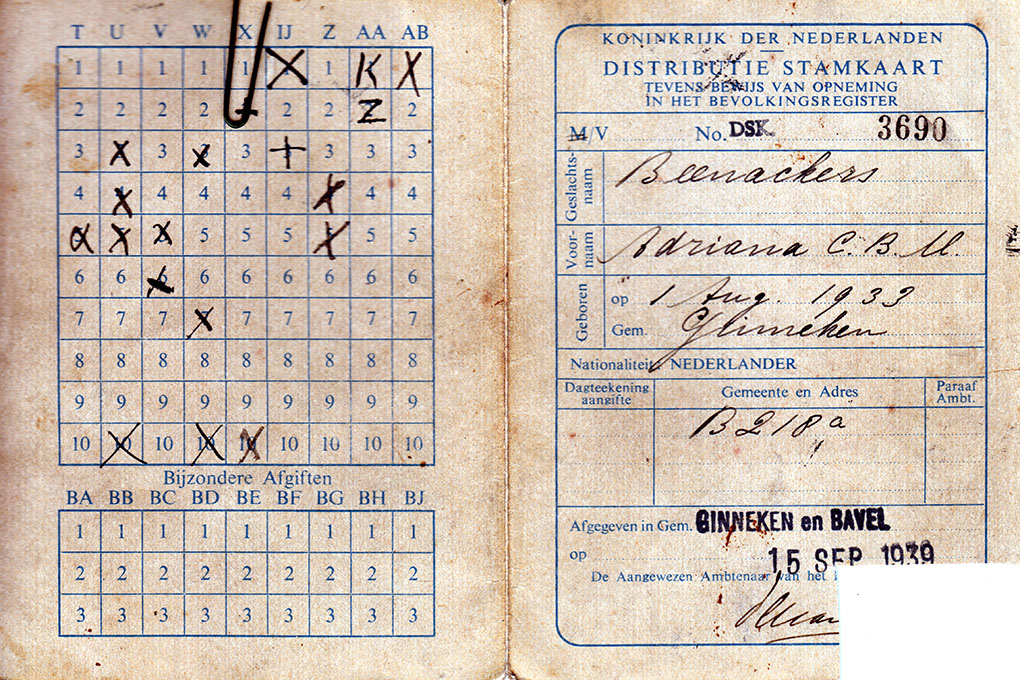 T U V W X IJ Z AA AB
1 1 1 1 1 1 K X
2 2 2 2 2 2 2 Z 2
3 X 3 X 3 3 3 3
4 X 4 4 4 4 X 4 4
X X X 5 5 5 X 5 5
6 6 6 6 6 6 6 6 6
7 7 7 X 7 7 7 7 7
8 8 8 8 8 8 8 8 8
9 9 9 9 9 9 9 9 9
10 10 10 10 10 10 10 10 10
Bijzondere Afgiften
BA BB BC BD BE BF BG BH BJ
1 1 1 1 1 1 1 1 1
2 2 2 2 2 2 2 2 2
3 3 3 3 3 3 3 3 3
KONINKRIJK DER NEDERLANDEN
DISTRIBUTIE STAMKAART
TEVENS BEWIJS VAN OPNEMING
IN HET BEVOLKINGSREGISTER
M/V No. DSK. 3690
Geslachts-
naam
Beenackers
Voor-
naam
Adriana C. B. M.
Geboren
op 1 Aug. 1933
Gem. Ginneken
Nationaliteit NEDERLANDER
Dagteekening
aangifte
Gemeente en Adres
Paraaf
Ambt.
B 218a
Afgegeven in Gem. GINNEKEN en BAVEL
op 15 SEP. 1939
De Aangewezen Ambtenaar van het